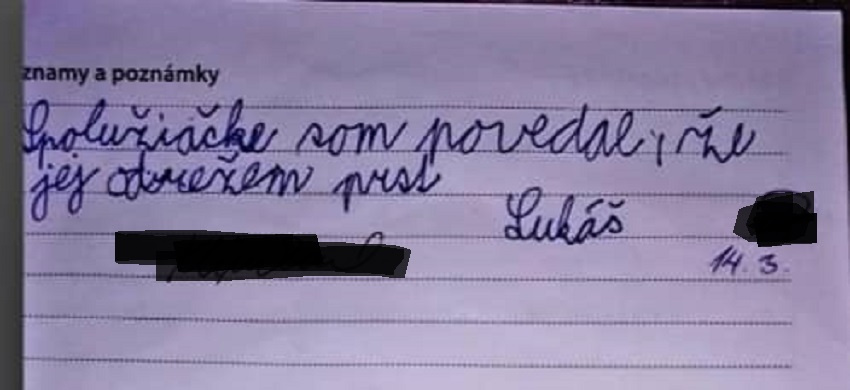 znamy a poznámky
Spolužiačke som povedal, že
jej odrežem prst
Lukáš
14. 3.